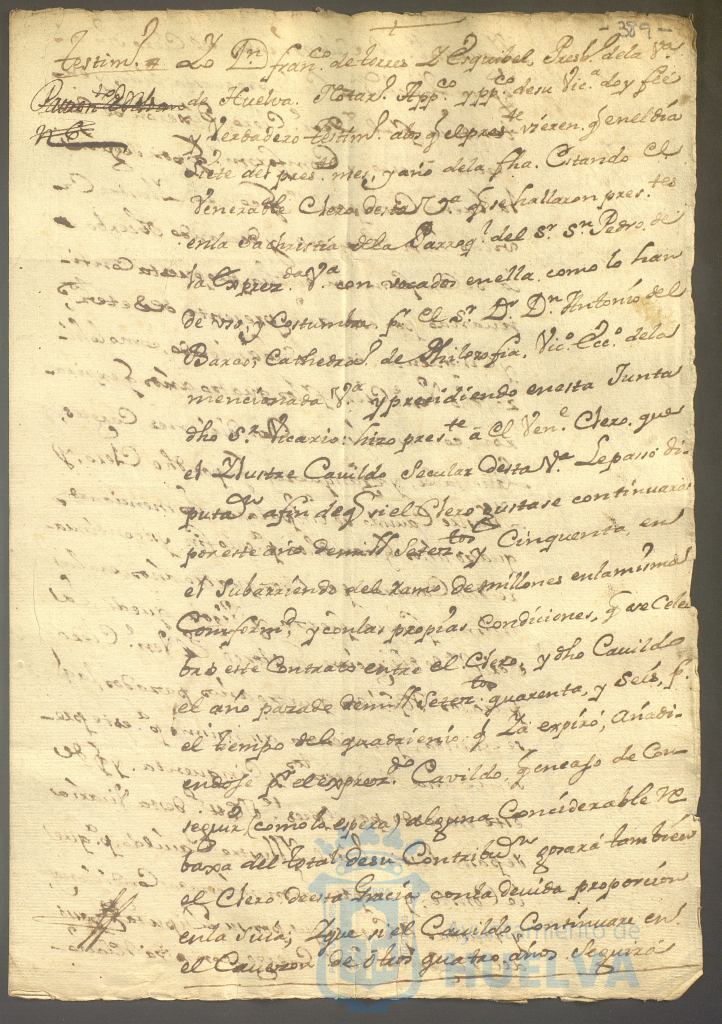 - 389 -
Testim.º Yo Dn. franco. de torres y Esquibel, Presb.º de la Va.
de Huelva. Notar.º Appco. y ppco. de su Vica. doy fee
y Verdadero testim.º a los q el preste. vieren, q en el dia
siete del preste. mes, y año de la fha. Estando el
Venerable Clero desta Va. q se hallaron prestes.
en la Sachristía de la Parroql. del Sr. Sn. Pedro, de
la Exprezda. Va. con vocados en ella como lo han
de uso, y Costumbre pr. el Sr. Dr. Dn. Antonio del
Barco, Cathedrco. de Philosofia, Vico. Ecco. de la
mencionada Va. y presidiendo en esta Junta
dho Sr. Vicario: hizo preste. a el Vene. Clero, que
el Ylustre Cavildo Secular desta Va. Le passó di-
putan. a fin de q si el Clero gustase continuara
por este año de mill Setectos. y Cinquenta, en
el Subarriendo del ramo de millones en la misma
Conformd. y con las propias Condiciones, q se cele
bró este Contrato entre el Clero, y dho Cavildo
el año pazado de mill Setectos. quarenta, y Seis, pr.
el tiempo del quadrienio q Ya expiró, Añadi-
endose pr. el exprezdo. Cavildo, q en caso de Con-
seguir (como lo espera) alguna Conciderable re
baxa del total de su Contribun. gozará tambien
el Clero de esta Gracia con la devida proporción
en la suia; Y que si el Cavildo Continuare en
el Cavezon de otros quatro años seguirá
Ayuntamiento de
HUELVA